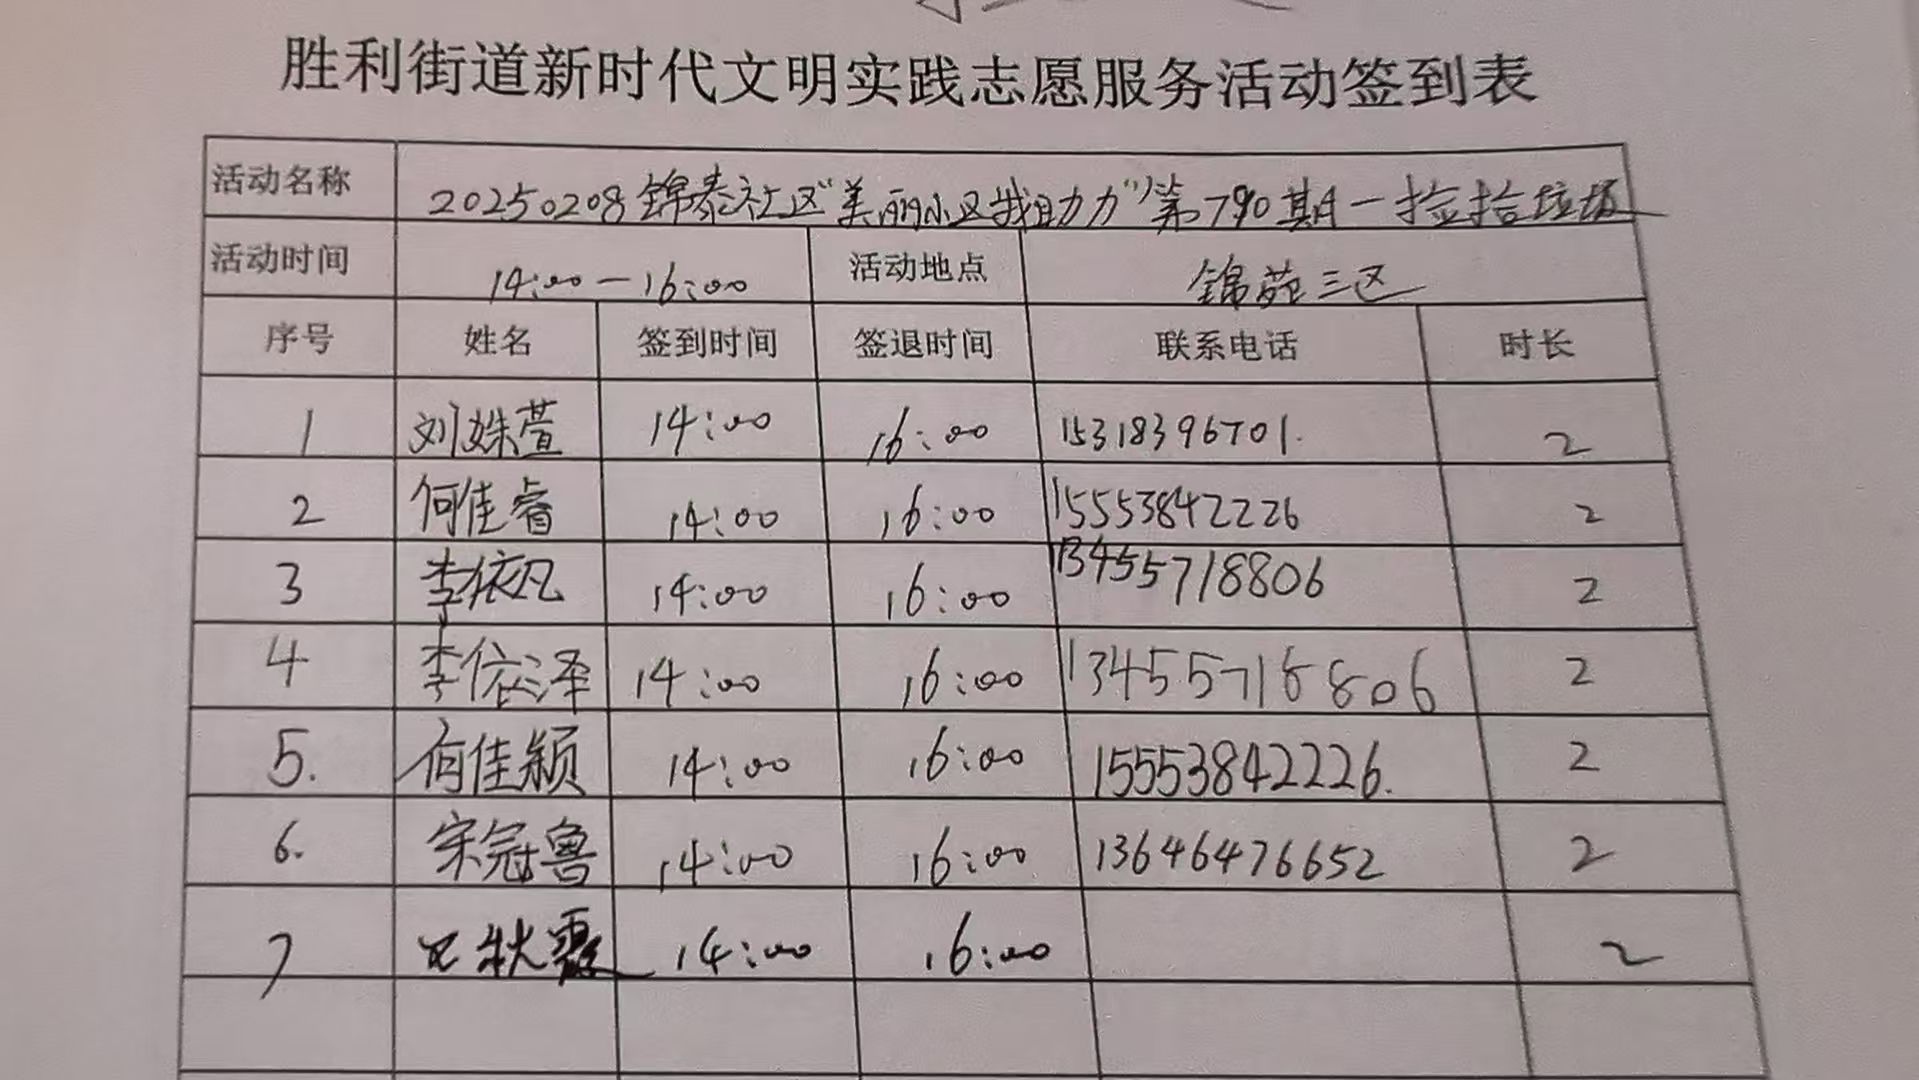 胜利街道新时代文明实践志愿服务活动签到表
活动名称 20250208锦泰社区“美丽小区我助力”第790期—捡拾垃圾
活动时间 14:00—16:00 活动地点 锦苑三区
序号 姓名 签到时间 签退时间 联系电话 时长
1 刘姝萱 14:00 16:00 15318396701. 2
2 何佳睿 14:00 16:00 15553842226 2
3 李依凡 14:00 16:00 13455718806 2
4 李依泽 14:00 16:00 13455718806 2
5. 何佳颖 14:00 16:00 15553842226. 2
6. 宋冠鲁 14:00 16:00 13646476652 2
7 秋霞 14:00 16:00 2